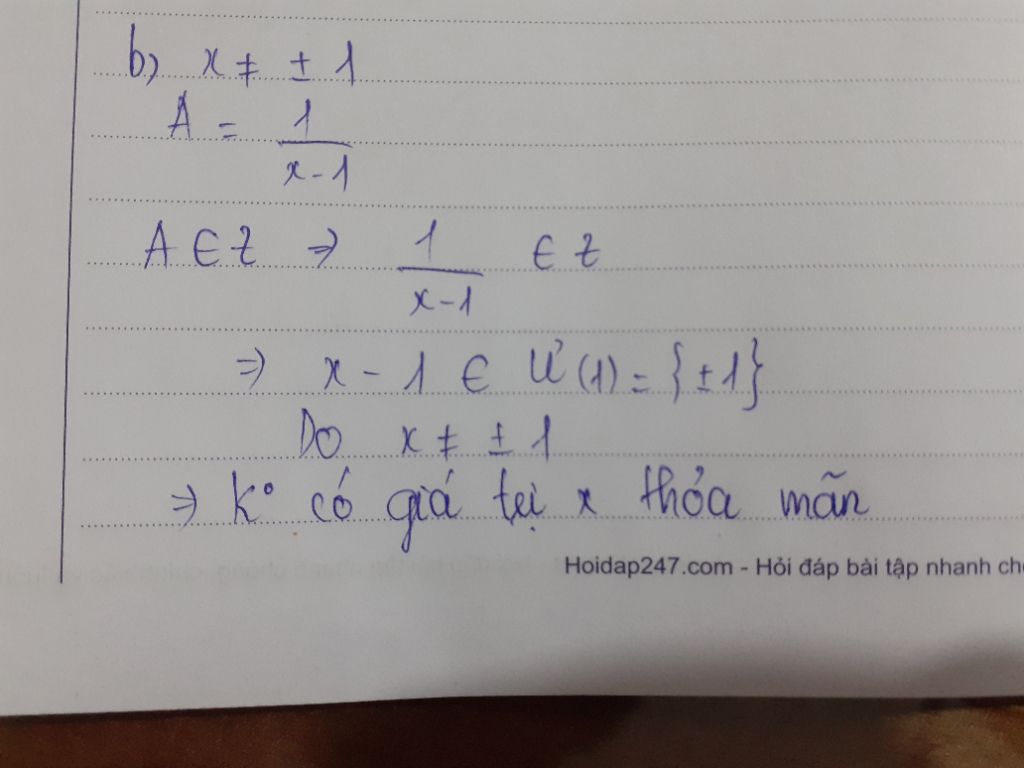 b) x ≠ ± 1
A = 1/(x-1)
A ∈ Z ⇒ 1/(x-1) ∈ Z
⇒ x - 1 ∈ Ư(1) = {±1}
Do x ≠ ± 1
⇒ K° có giá trị x thỏa mãn
Hoidap247.com - Hỏi đáp bài tập nhanh ch